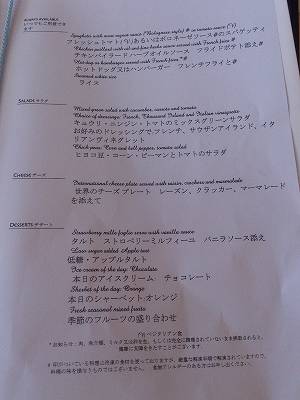 ALWAYS AVAILABLE
いつでもご用意できます
Spaghetti with meat vegan sauce ("Bolognese style) # or tomato sauce (*V)
フレッシュトマト(*V)あるいはボロネーゼソース#のスパゲッティ
チキンパイヤード ハーブオイルソース フライドポテト添え#
Hot dog or hamburger served with French fries#
ホットドッグ又はハンバーガー フレンチフライと#
Steamed white rice
ライス
SALADS サラダ
Mixed green salad with cucumber, carrots and tomato
Choice of dressings: French, Thousand Island and Italian vinaigrette
キュウリ・ニンジン・トマトのミックスグリーンサラダ
お好みのドレッシングで、フレンチ、サウザンアイランド、イタリアンヴィネグレット
Chick peas: Corn and bell pepper, tomato salad
ヒヨコ豆・コーン・ピーマンとトマトのサラダ
CHEESE チーズ
International cheese plate served with raisin, crackers and marmalade
世界のチーズプレート レーズン、クラッカー、マーマレードを添えて
DESSERTS デザート
Strawberry mille foglie serve with vanilla sauce
タルト ストロベリーミルフィーユ バニラソース添え
Low sugar added: Apple tart
低糖・アップルタルト
Ice cream of the day: Chocolate
本日のアイスクリーム チョコレート
Sherbet of the day: Orange
本日のシャーベット:オレンジ
Fresh seasonal mixed fruits
季節のフルーツの盛り合わせ
(*V) ベジタリアン食